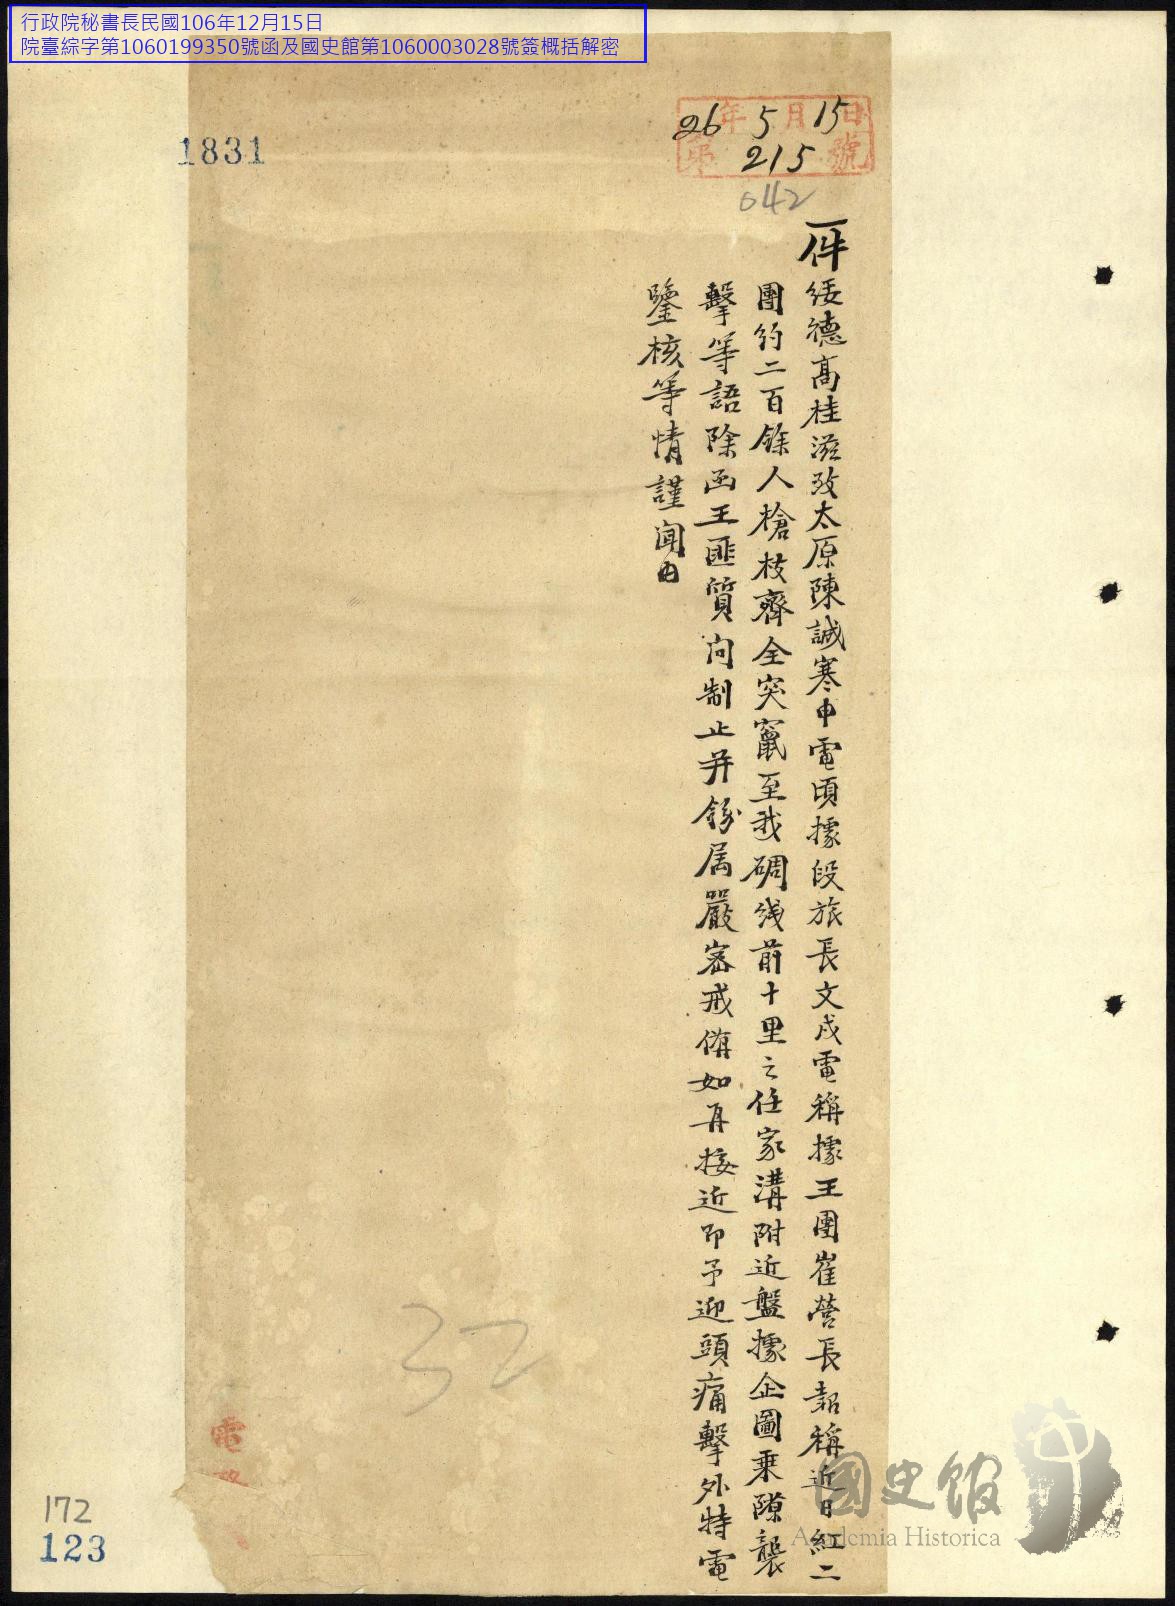 行政院秘書長民國106年12月15日
院臺綜字第1060199350號函及國史館第1060003028號簽概括解密
1831
26年5月15日
第215號
042
一件綏德高桂滋致太原陳誠寒申電頃據段旅長文戌電稱據王團崔營長報稱近日紅二
團約二百餘人槍枝齊全突竄至我碉线前十里之任家溝附近盤據企圖乘隙襲
擊等語除函王匪質问制止并飭属嚴密戒俻如再接近即予迎頭痛擊外特電
鑒核等情謹闻由
32
電
172
123
國史館
Academia Historica